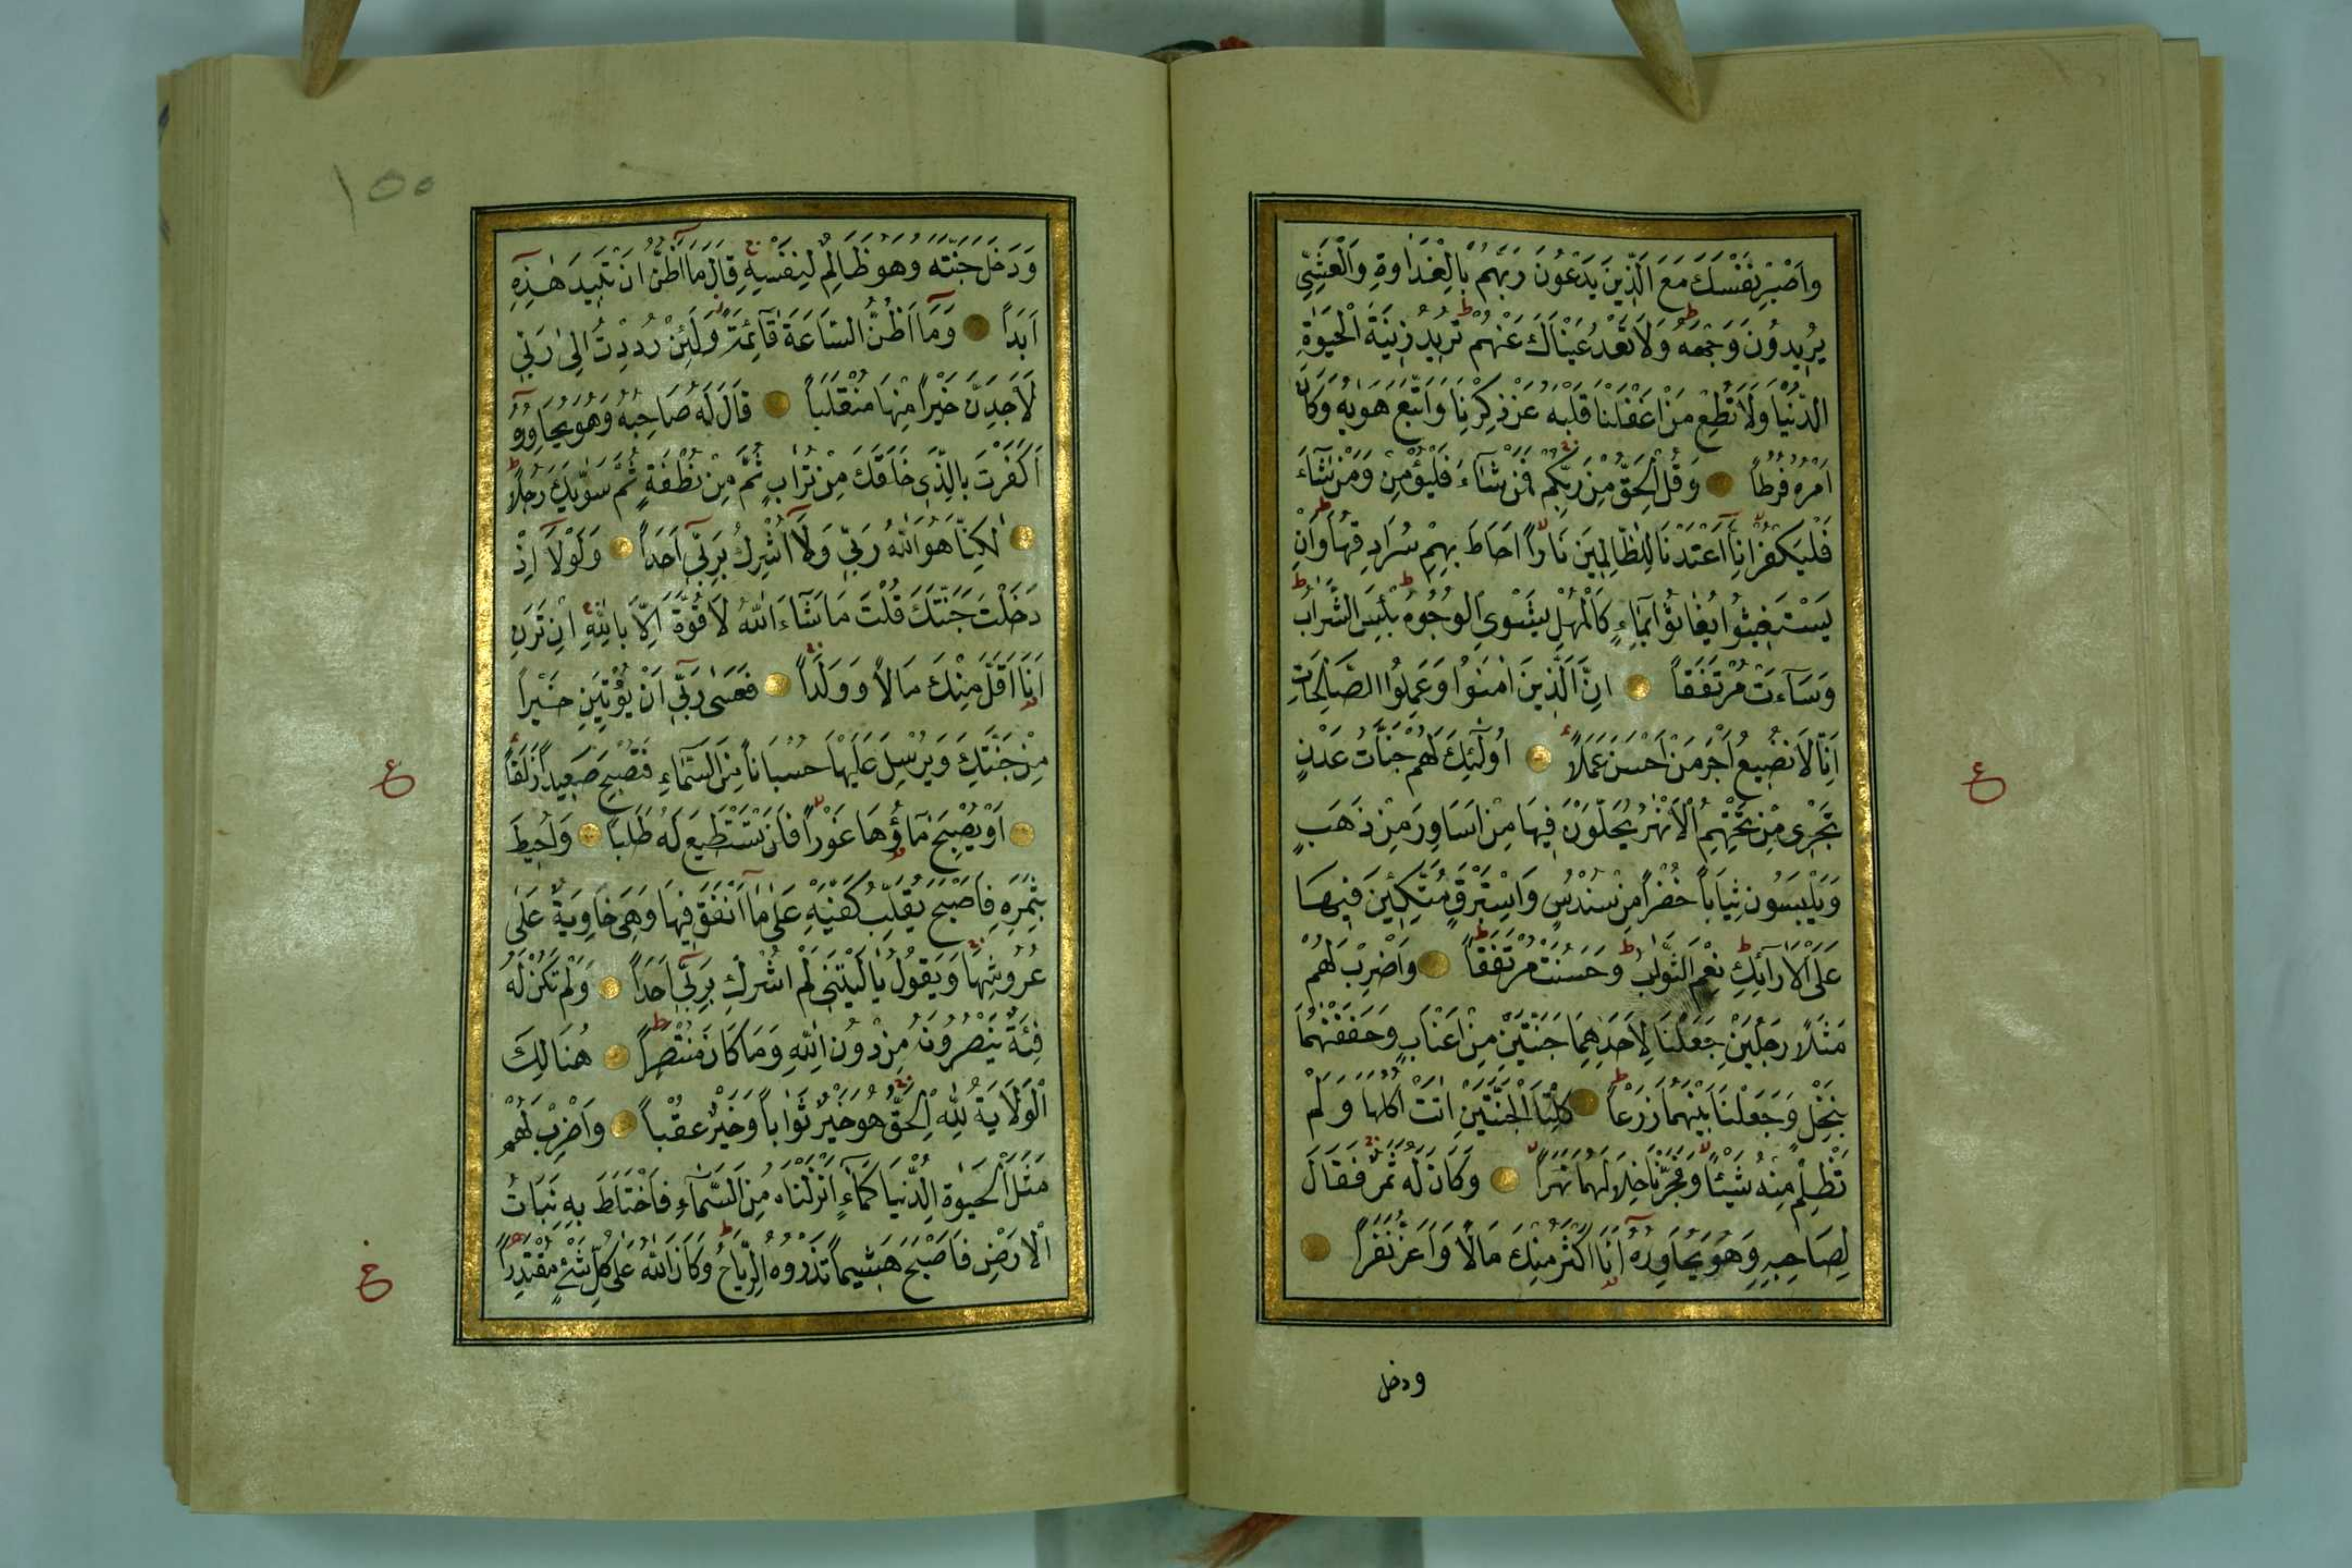 وَاصْبِرْ نَفْسَكَ مَعَ الَّذِينَ يَدْعُونَ رَبَّهُمْ بِالْغَدٰوةِ وَالْعَشِيِّ
يُرِيدُونَ وَجْهَهُ وَلَا تَعْدُ عَيْنَاكَ عَنْهُمْ تُرِيدُ زِينَةَ الْحَيٰوةِ
الدُّنْيَا وَلَا تُطِعْ مَنْ اَغْفَلْنَا قَلْبَهُ عَنْ ذِكْرِنَا وَاتَّبَعَ هَوٰيهُ وَكَانَ
اَمْرُهُ فُرُطاً وَقُلِ الْحَقُّ مِنْ رَبِّكُمْ فَمَنْ شَاءَ فَلْيُؤْمِنْ وَمَنْ شَاءَ
فَلْيَكْفُرْ اِنَّا اَعْتَدْنَا لِلظَّالِمِينَ نَاراً اَحَاطَ بِهِمْ سُرَادِقُهَا وَاِنْ
يَسْتَغِيثُوا يُغَاثُوا بِمَاءٍ كَالْمُهْلِ يَشْوِى الْوُجُوهَ بِئْسَ الشَّرَابُ
وَسَاءَتْ مُرْتَفَقاً اِنَّ الَّذِينَ اٰمَنُوا وَعَمِلُوا الصَّالِحَاتِ
اِنَّا لَا نُضِيعُ اَجْرَ مَنْ اَحْسَنَ عَمَلاً اُولٰئِكَ لَهُمْ جَنَّاتُ عَدْنٍ
تَجْرِى مِنْ تَحْتِهِمُ الْاَنْهٰرُ يُحَلَّوْنَ فِيهَا مِنْ اَسَاوِرَ مِنْ ذَهَبٍ
وَيَلْبَسُونَ ثِيَاباً خُضْراً مِنْ سُنْدُسٍ وَاِسْتَبْرَقٍ مُتَّكِئِينَ فِيهَا
عَلَى الْاَرَائِكِ نِعْمَ الثَّوَابُ وَحَسُنَتْ مُرْتَفَقاً وَاضْرِبْ لَهُمْ
مَثَلاً رَجُلَيْنِ جَعَلْنَا لِاَحَدِهِمَا جَنَّتَيْنِ مِنْ اَعْنَابٍ وَحَفَفْنٰهُمَا
بِنَخْلٍ وَجَعَلْنَا بَيْنَهُمَا زَرْعاً كِلْتَا الْجَنَّتَيْنِ اٰتَتْ اُكُلَهَا وَلَمْ
تَظْلِمْ مِنْهُ شَيْئاً وَفَجَّرْنَا خِلَالَهُمَا نَهَراً وَكَانَ لَهُ ثَمَرٌ فَقَالَ
لِصَاحِبِهِ وَهُوَ يُحَاوِرُهُ اَنَا اَكْثَرُ مِنْكَ مَالاً وَاَعَزُّ نَفَراً
ع
ودخل
١٥٥
وَدَخَلَ جَنَّتَهُ وَهُوَ ظَالِمٌ لِنَفْسِهِ قَالَ مَا اَظُنُّ اَنْ تَبِيدَ هٰذِهِ
اَبَداً وَمَا اَظُنُّ السَّاعَةَ قَائِمَةً وَلَئِنْ رُدِدْتُ اِلٰى رَبِّى
لَاَجِدَنَّ خَيْراً مِنْهَا مُنْقَلَباً قَالَ لَهُ صَاحِبُهُ وَهُوَ يُحَاوِرُهُ
اَكَفَرْتَ بِالَّذِى خَلَقَكَ مِنْ تُرَابٍ ثُمَّ مِنْ نُطْفَةٍ ثُمَّ سَوّٰيكَ رَجُلاً
لٰكِنَّا هُوَ اللّٰهُ رَبِّى وَلَا اُشْرِكُ بِرَبِّى اَحَداً وَلَوْلَا اِذْ
دَخَلْتَ جَنَّتَكَ قُلْتَ مَا شَاءَ اللّٰهُ لَا قُوَّةَ اِلَّا بِاللّٰهِ اِنْ تَرَنِ
اَنَا اَقَلَّ مِنْكَ مَالاً وَوَلَداً فَعَسٰى رَبِّى اَنْ يُؤْتِيَنِ خَيْراً
مِنْ جَنَّتِكَ وَيُرْسِلَ عَلَيْهَا حُسْبَاناً مِنَ السَّمَاءِ فَتُصْبِحَ صَعِيداً زَلَقاً
اَوْ يُصْبِحَ مَاؤُهَا غَوْراً فَلَنْ تَسْتَطِيعَ لَهُ طَلَباً وَاُحِيطَ
بِثَمَرِهِ فَاَصْبَحَ يُقَلِّبُ كَفَّيْهِ عَلٰى مَا اَنْفَقَ فِيهَا وَهِىَ خَاوِيَةٌ عَلٰى
عُرُوشِهَا وَيَقُولُ يَا لَيْتَنِى لَمْ اُشْرِكْ بِرَبِّى اَحَداً وَلَمْ تَكُنْ لَهُ
فِئَةٌ يَنْصُرُونَهُ مِنْ دُونِ اللّٰهِ وَمَا كَانَ مُنْتَصِراً هُنَالِكَ
الْوَلَايَةُ لِلّٰهِ الْحَقِّ هُوَ خَيْرٌ ثَوَاباً وَخَيْرٌ عُقْباً وَاضْرِبْ لَهُمْ
مَثَلَ الْحَيٰوةِ الدُّنْيَا كَمَاءٍ اَنْزَلْنَاهُ مِنَ السَّمَاءِ فَاخْتَلَطَ بِهِ نَبَاتُ
الْاَرْضِ فَاَصْبَحَ هَشِيماً تَذْرُوهُ الرِّيَاحُ وَكَانَ اللّٰهُ عَلٰى كُلِّ شَىْءٍ مُقْتَدِراً
ع